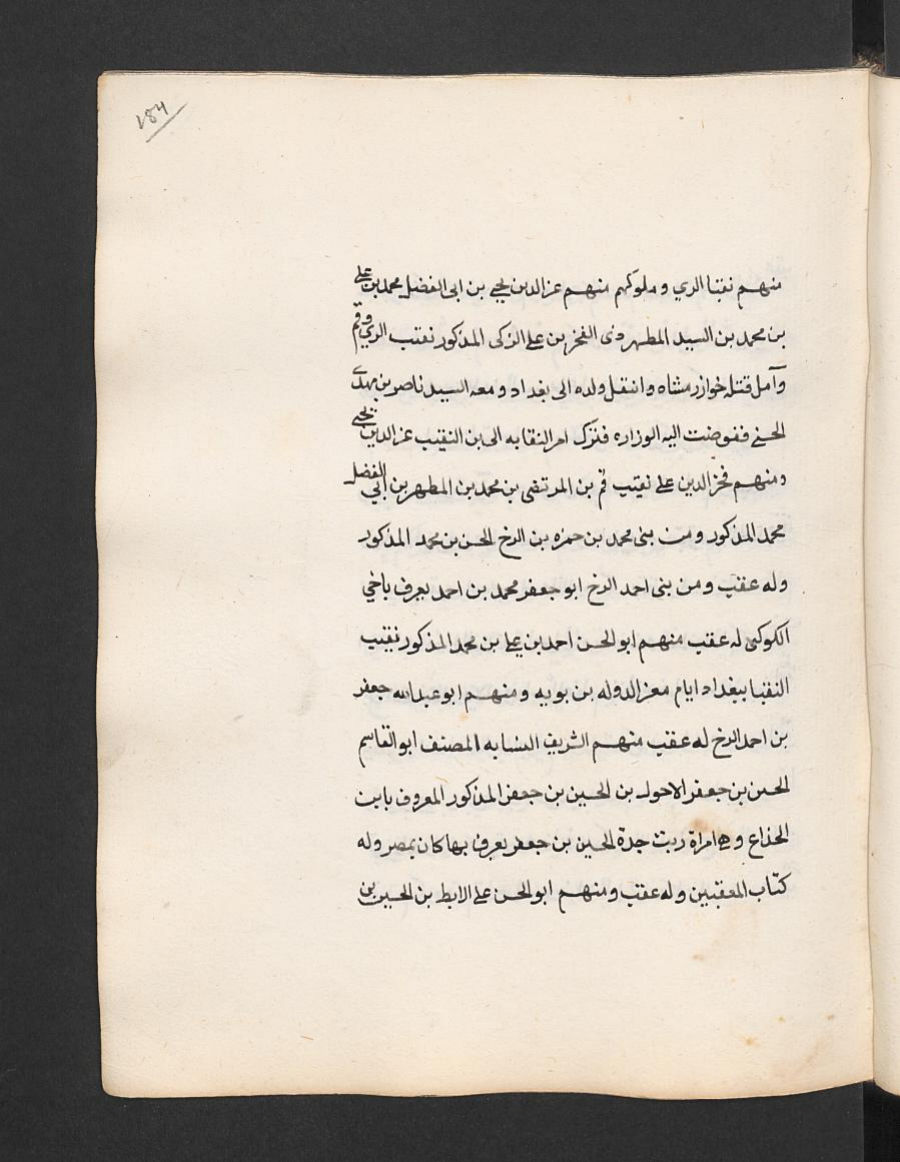 184
منهم نقبا الري وملوكهم منهم عز الدين يحيى بن ابى الفضل محمد بن على
بن محمد بن السيد المطهر ذى الفخر بن على الزكى المذكور نقيب الري وقم
وآمل قتله خوارزمشاه وانتقل ولده الى بغداد ومعه السيد ناصر بن مهدى
الحسنى ففوضت اليه الوزاره فترك امر النقابه الى بن النقيب عز الدين يحيى
ومنهم فخر الدين على نقيب قم بن المرتضى بن محمد بن المطهر بن ابي الفضل
محمد المذكور ومن بنى محمد بن حمزه بن الدخ الحسن بن محمد المذكور
وله عقب ومن بنى احمد الدخ ابو جعفر محمد بن احمد يعرف باخي
الكوكبى له عقب منهم ابو الحسن احمد بن على بن محمد المذكور نقيب
النقبا ببغداد ايام معز الدوله بن بويه ومنهم ابو عبد الله جعفر
بن احمد الدخ له عقب منهم الشريف النسابه المصنف ابو القاسم
الحسين بن جعفر الاحول بن الحسين بن جعفر المذكور المعروف بابن
الخداع وهى امراة ربت جدة الحسين بن جعفر يعرف بها كان بمصر وله
كتاب المعقبين وله عقب ومنهم ابو الحسن على الابط بن الحسين بن